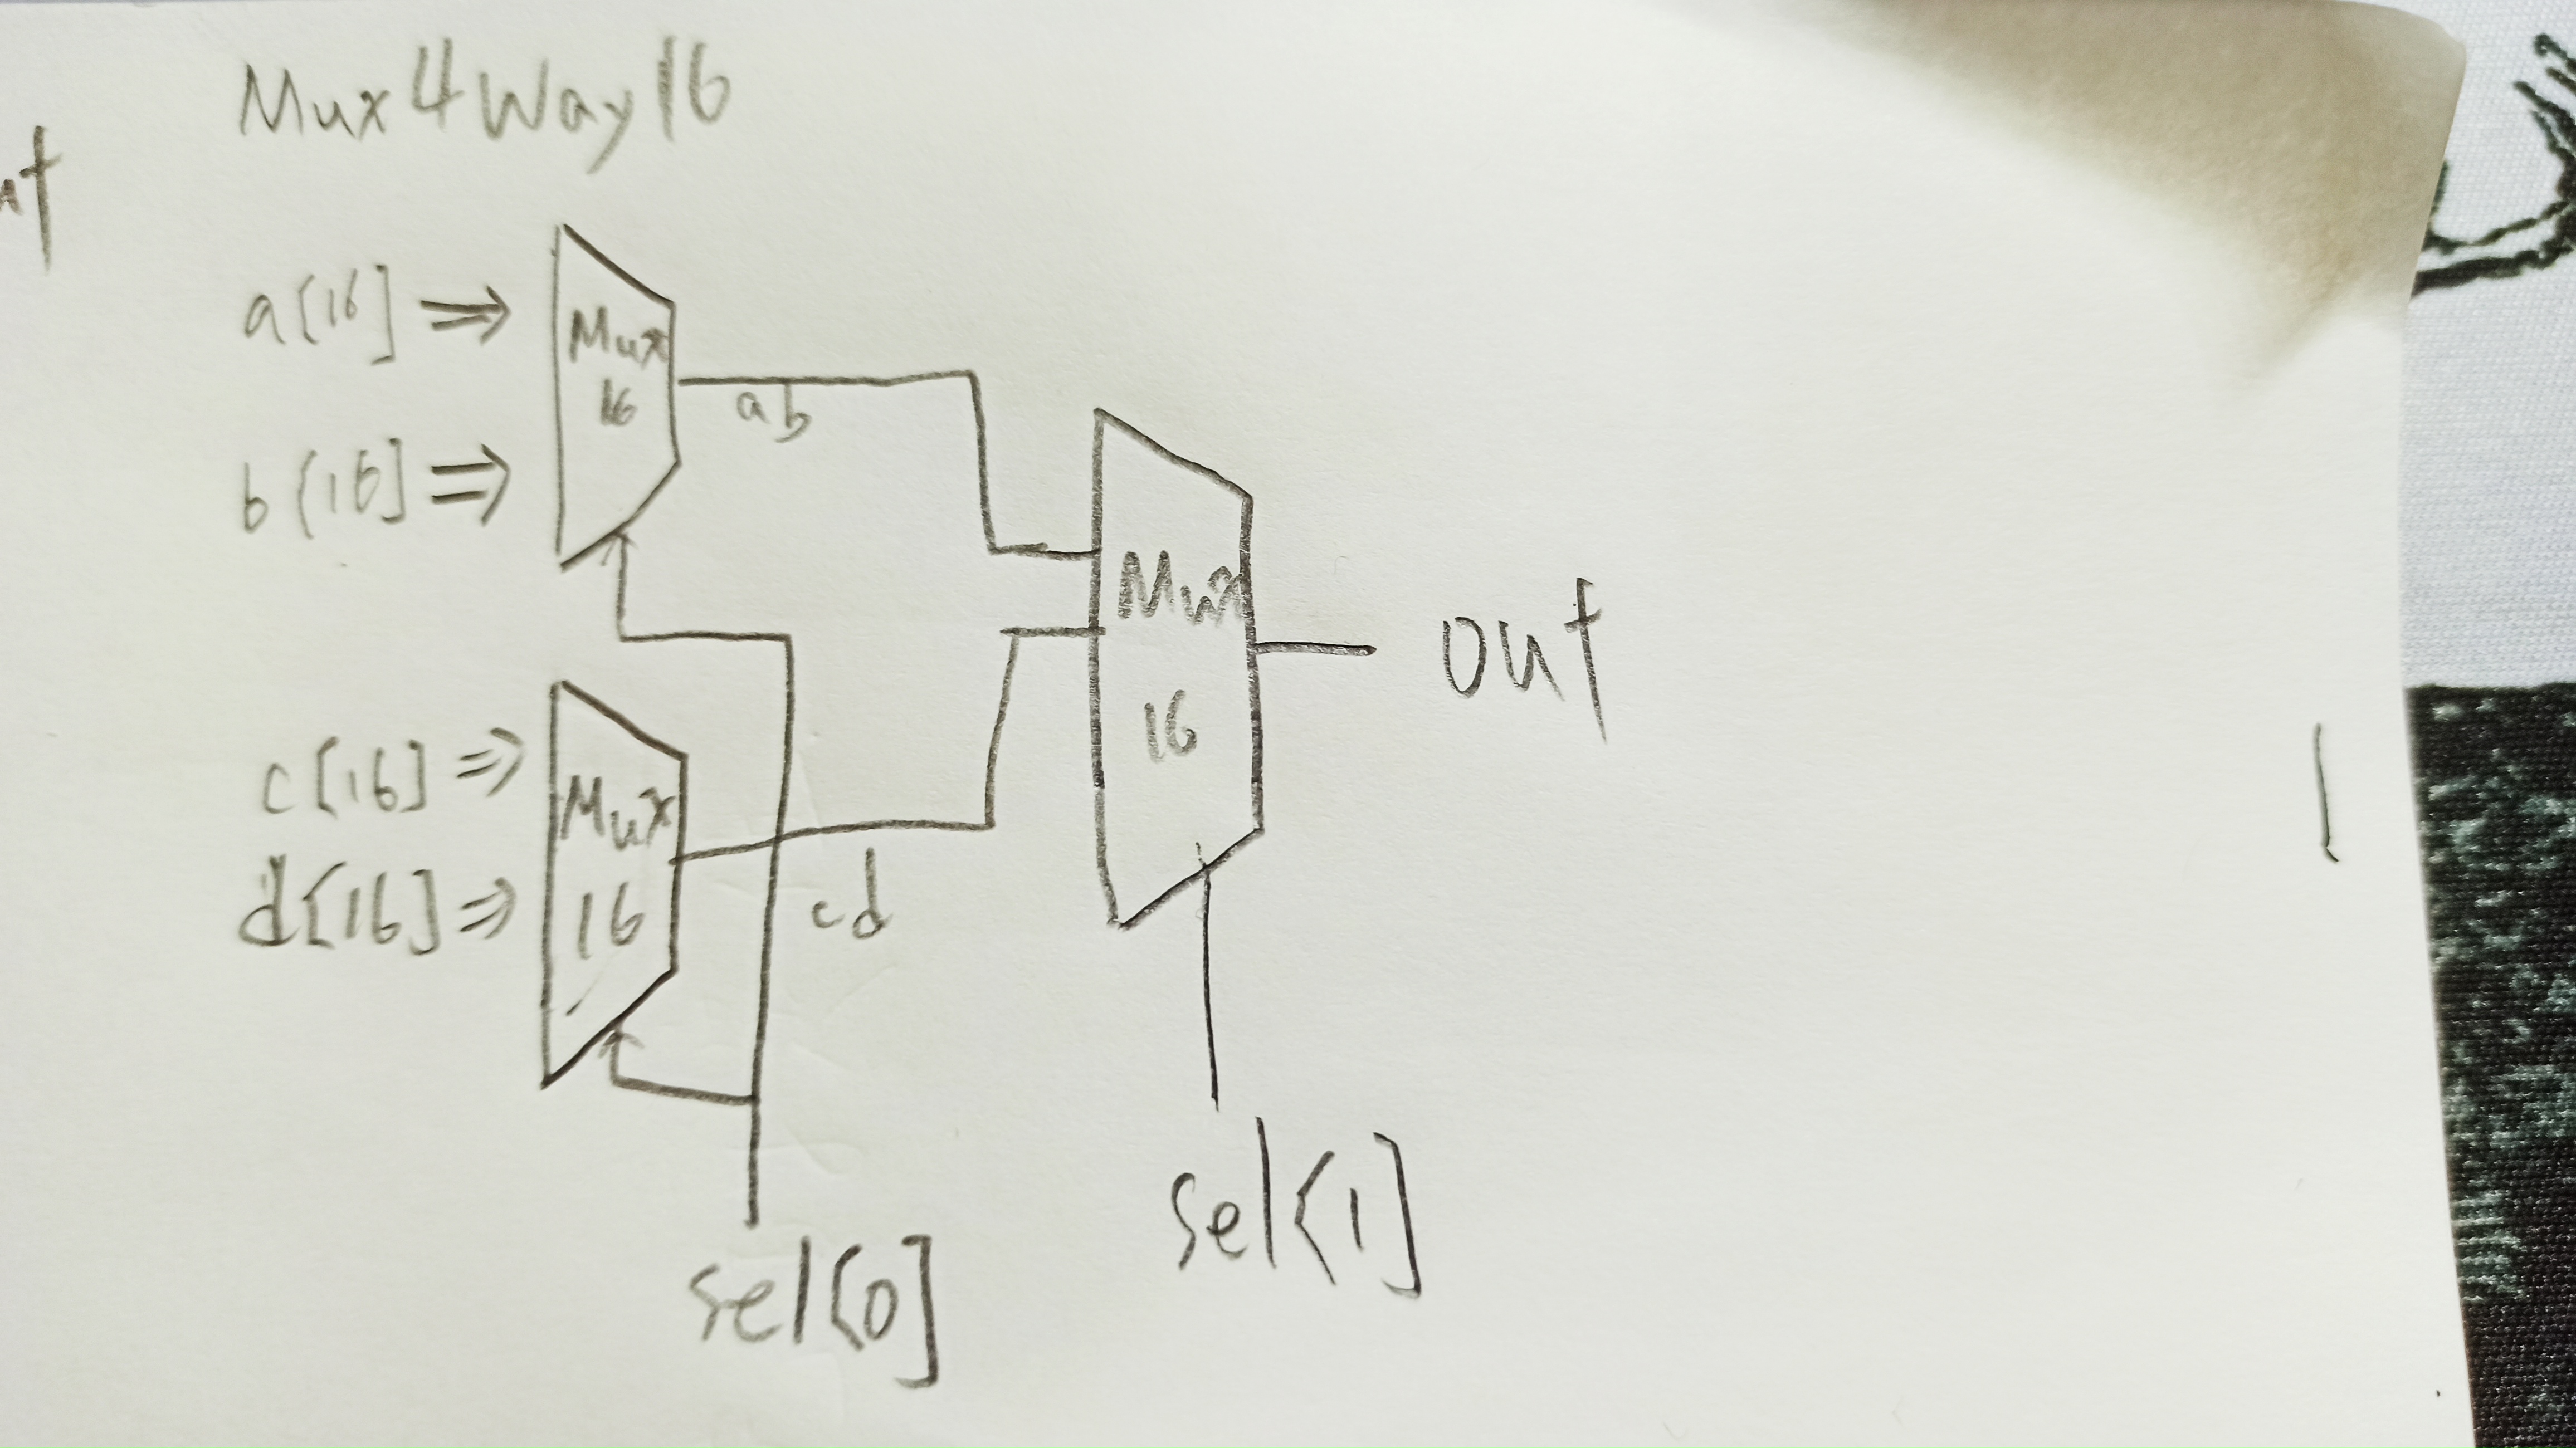 Mux4Way16
a[16] ⇒
b[16] ⇒
Mux
16
ab
c[16] ⇒
d[16] ⇒
Mux
16
cd
Mux
16
out
sel[0]
sel[1]